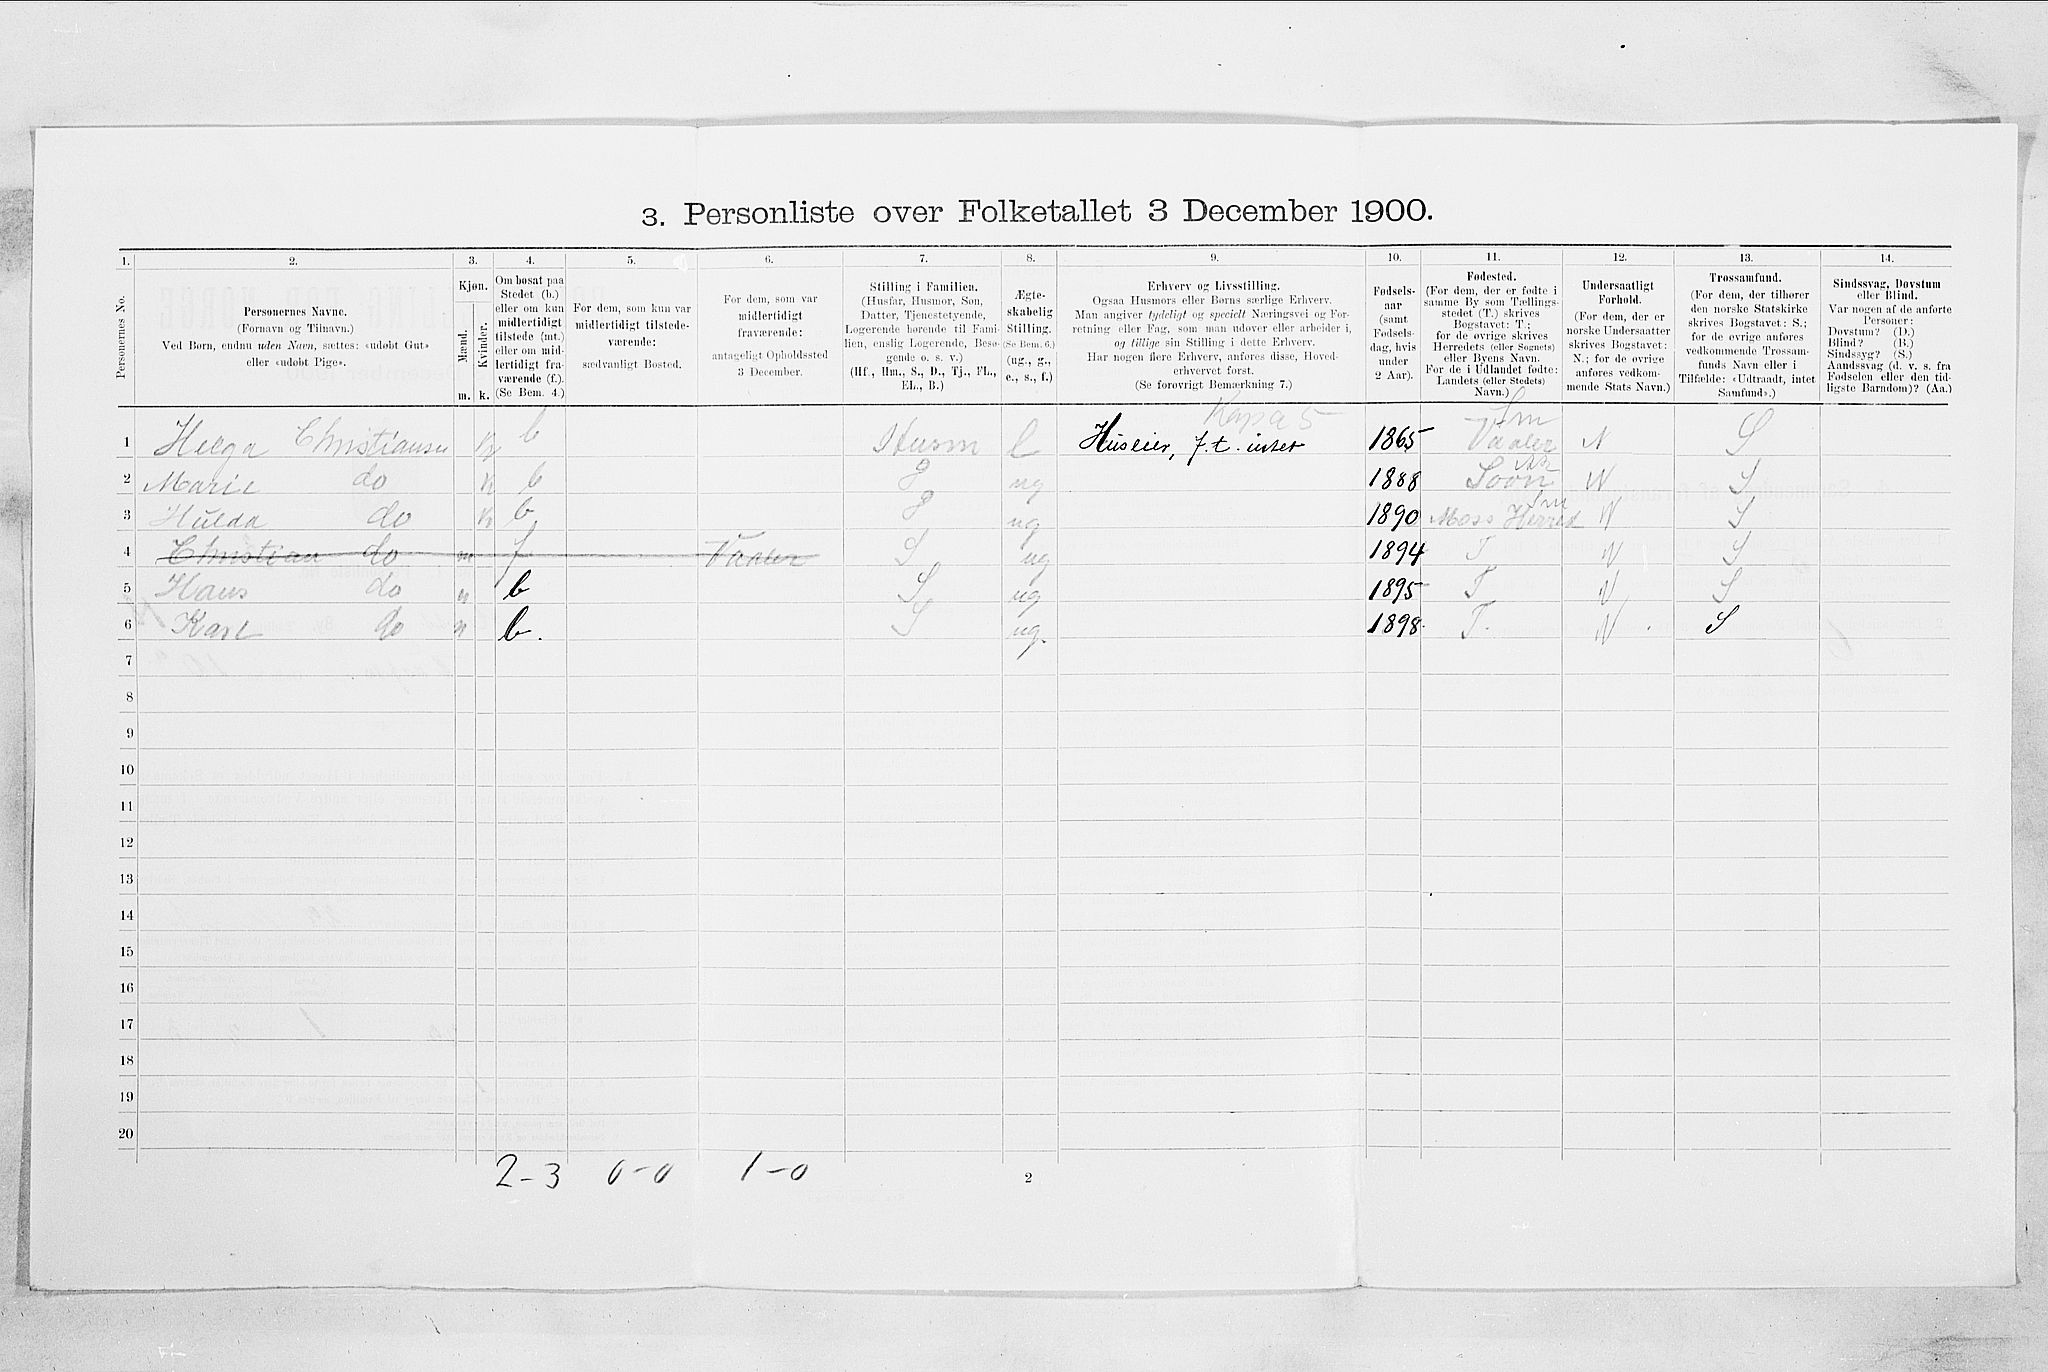 3. Personliste over Folketallet 3 December 1900.
1. 2. 3. 4. 5. 6. 7. 8. 9. 10. 11. 12. 13. 14.
Personernes No.
Personernes Navne.
(Fornavn og Tilnavn.)
Ved Børn, endnu uden Navn, sættes: «udøbt Gut»
eller «udøbt Pige».
Kjøn.
Mænd.
Kvinder.
m. k.
Om bosat paa
Stedet (b.)
eller om kun
midlertidigt
tilstede (mt.)
eller om mid-
lertidigt fra-
værende (f.).
(Se Bem. 4.)
For dem, som kun var
midlertidigt tilstede-
værende:
sædvanligt Bosted.
For dem, som var
midlertidigt
fraværende:
antageligt Opholdssted
3 December.
Stilling i Familien.
(Husfar, Husmor, Søn,
Datter, Tjenestetyende,
Logerende hørende til Fami-
lien, enslig Logerende, Besø-
gende o. s. v.)
(Hf., Hm., S., D., Tj., FL.,
EL., B.)
Ægte-
skabelig
Stilling.
(Se Bem. 6.)
(ug., g.,
e., s., f.)
Erhverv og Livsstilling.
Ogsaa Husmors eller Børns særlige Erhverv.
Man angiver tydeligt og specielt Næringsvei og For-
retning eller Fag, som man udøver eller arbeider i,
og tillige sin Stilling i dette Erhverv.
Har nogen flere Erhverv, anføres disse, Hoved-
erhvervet først.
(Se forøvrigt Bemærkning 7.)
Fødsels-
aar
(samt
Fødsels-
dag, hvis
under
2 Aar).
Fødested.
(For dem, der er fødte i
samme By som Tællings-
stedet (T.) skrives
Bogstavet: T.;
for de øvrige skrives
Herredets (eller Sognets)
eller Byens Navn.
For de i Udlandet fødte:
Landets (eller Stedets)
Navn.)
Undersaatligt
Forhold.
(For dem, der er
norske Undersaatter
skrives Bogstavet:
N.; for de øvrige
anføres vedkom-
mende Stats Navn.)
Trossamfund.
(For dem, der tilhører
den norske Statskirke
skrives Bogstavet: S.;
for de øvrige anføres
vedkommende Trossam-
funds Navn eller i
Tilfælde: «Udtraadt, intet
Samfund».)
Sindssvag, Døvstum
eller Blind.
Var nogen af de anførte
Personer:
Døvstum? (D.)
Blind? (B.)
Sindssyg? (S.)
Aandssvag (d. v. s. fra
Fødselen eller den tid-
ligste Barndom)? (Aa.)
Kapa 5 Sm
1 Helga Christiansen k b Husm E Huseier, f.t. intet 1865 Vaaler N S
2 Marie do k b D ug 1888 Soon N S
Sm
3 Hulda do k b D ug 1890 Moss Herred N S
4 Christian do m f Vaaler S ug 1894 T N S
5 Hans do m b S ug 1895 T N S
6 Karl do m b. S ug. 1898. T. N. S
7
8
9
10
11
12
13
14
15
16
17
18
19
20
2-3 0-0 1-0
2